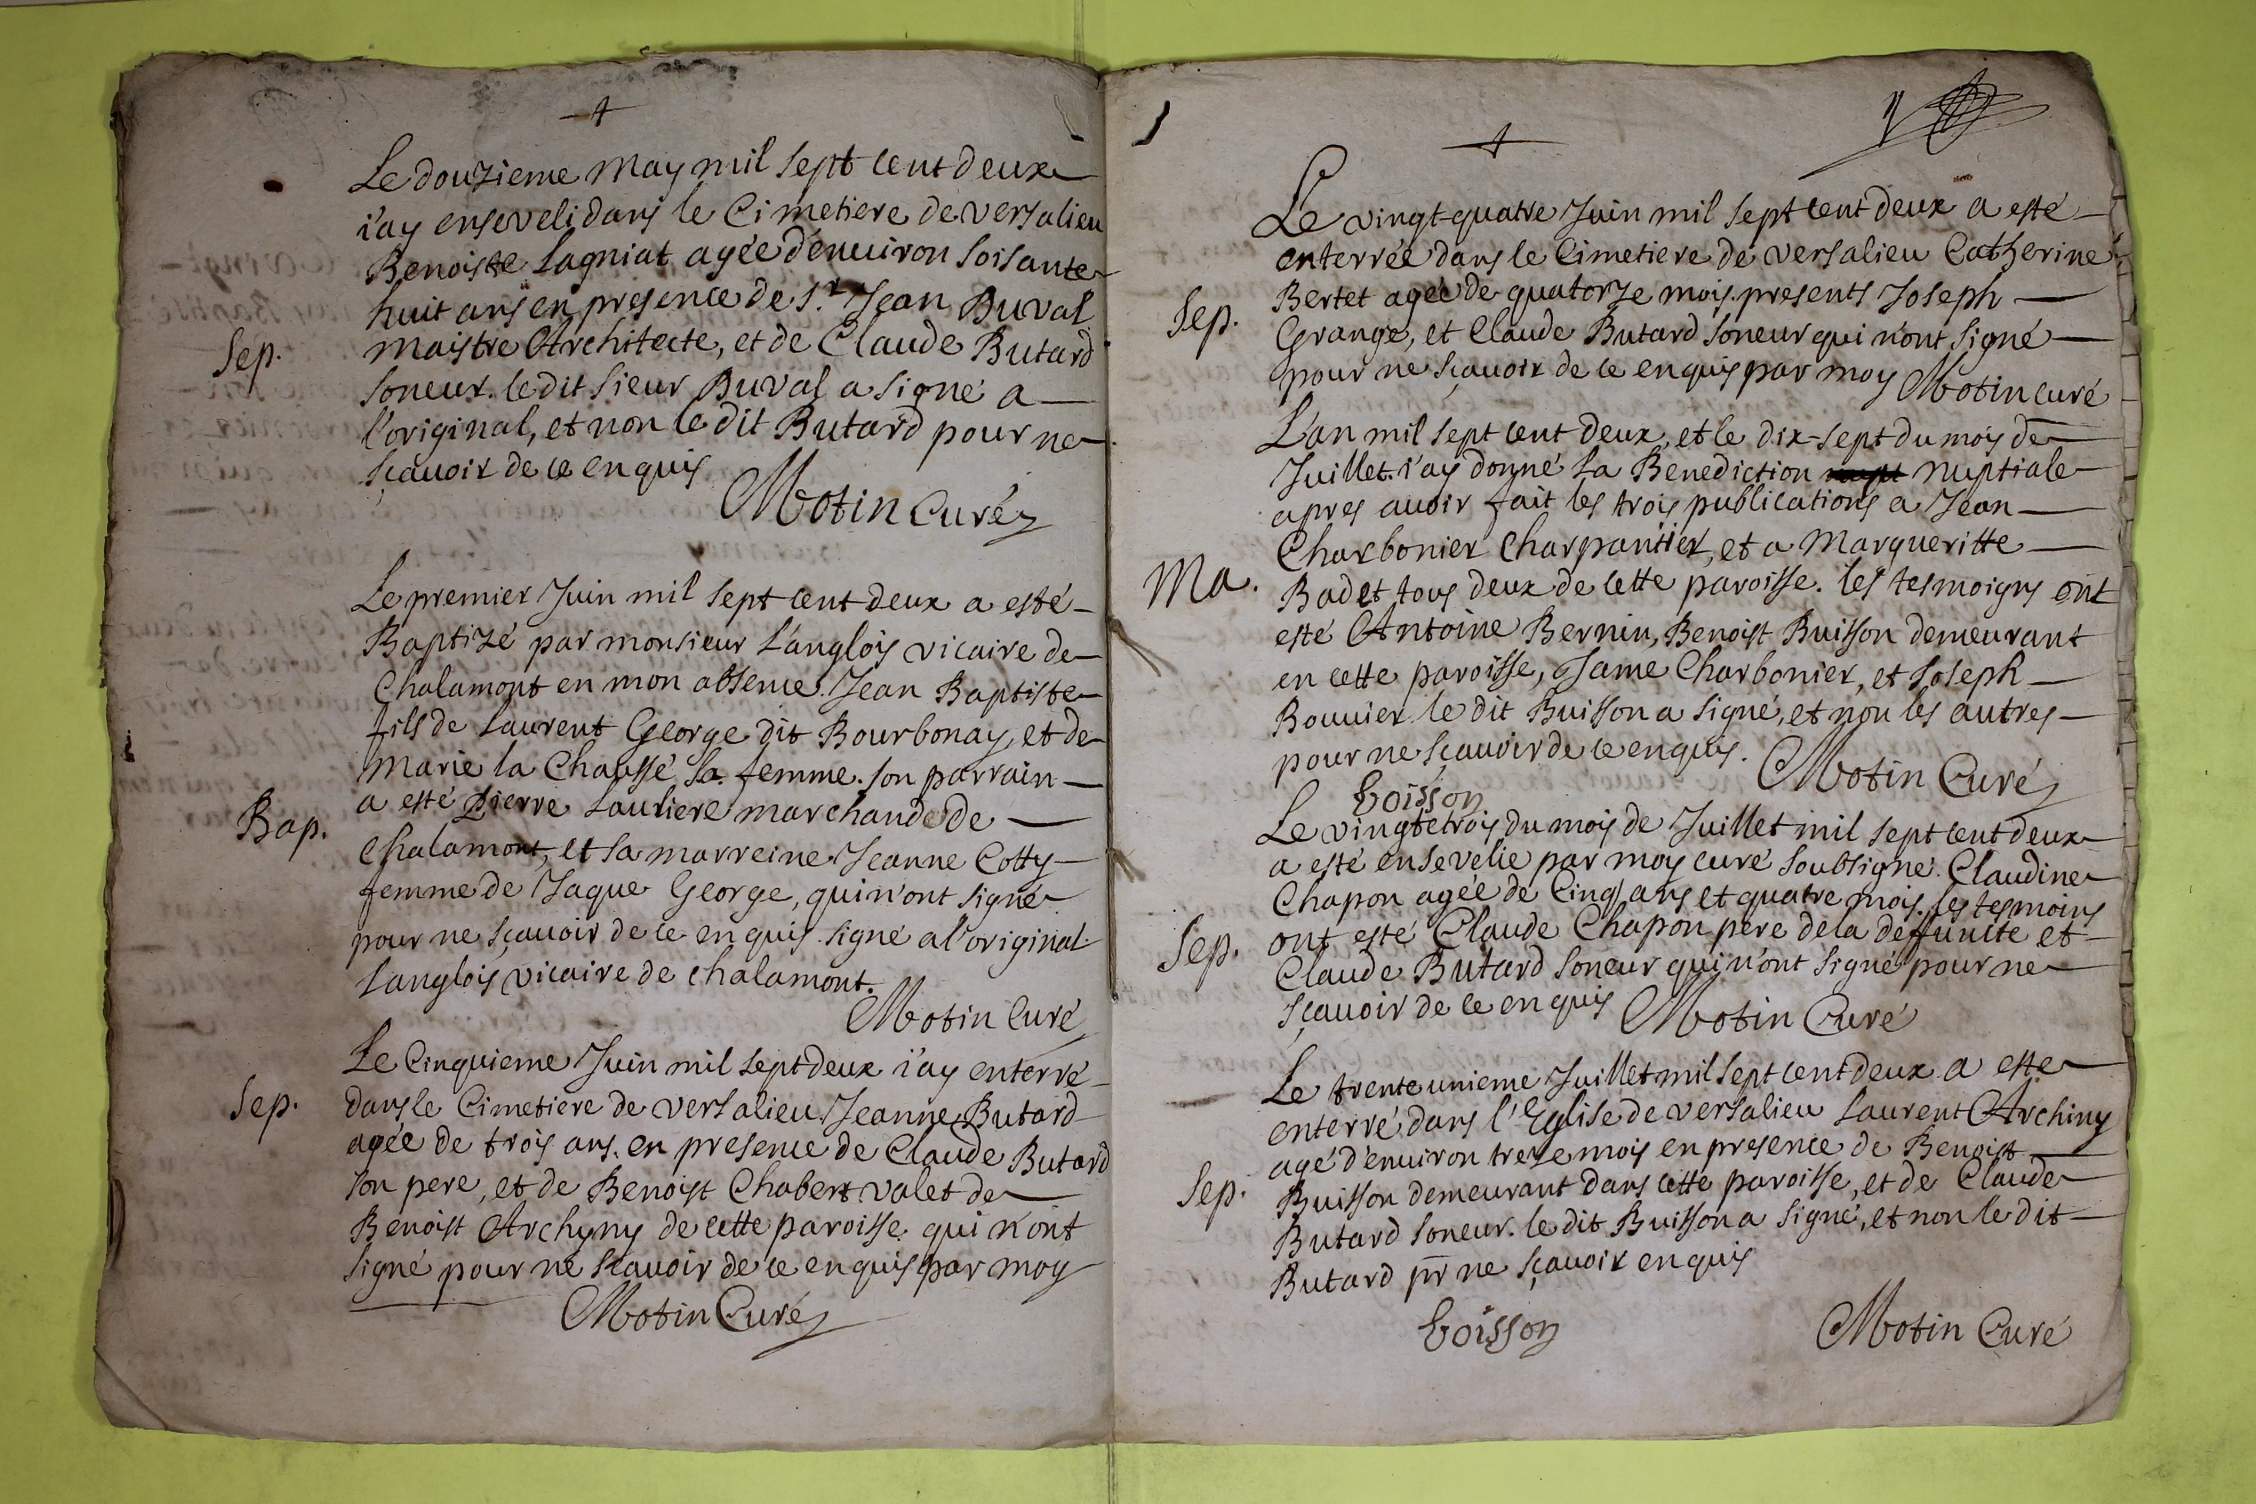 Le douzieme may mil sept cent deux
i'ay enseveli dans le Cimetiere de versalieu
Benoiste Lagniat agée d'enuiron soisante
huit ans en presence de Sr. Jean Buval
Sep.
maistre Architecte, et de Claude Butard
soneur. le dit sieur Buval a signé a
l'original, et non le dit Butard pour ne
sçauoir de ce enquis
Motin Curé
Le premier Juin mil sept cent deux a esté
Baptizé par monsieur Langlois vicaire de
Chalamont en mon absence. Jean Baptiste
fils de Laurent George dit Bourbonay, et de
marie la Chaussé sa femme. son parrain
a esté pierre Lauliere marchand de
Bap.
Chalamont, et sa marreine Jeanne Cotty
femme de Jaque George, qui n'ont signé
pour ne sçauoir de ce enquis. signé a l'original
Langlois vicaire de chalamont.
Motin Curé
Le Cinquieme Juin mil sept deux i'ay enterré
Sep.
dans le Cimetiere de versalieu Jeanne Butard
agée de trois ans. en presence de Claude Butard
son pere, et de Benoist Chabert valet de
Benoist Archyny de cette paroisse qui n'ont
signé pour ne scauoir de ce enquis par moy
Motin Curé
Le vingt quatre Juin mil sept cent deux a esté
enterrée dans le Cimetiere de versalieu Catherine
Bertet agée de quatorze mois. presents Joseph
Sep.
Grange, et Claude Butard soneur qui n'ont signé
pour ne sçauoir de ce enquis par moy Motin curé
L'an mil sept cent deux, et le dix-sept du mois de
Juillet. i'ay donné la Benediction nupt nuptiale
apres auoir fait les trois publications a Jean
Charbonier Charpantier, et a Margueritte
Ma.
Badet tous deux de cette paroisse. les tesmoigns ont
esté Antoine Bernin, Benoist Buisson demeurant
en cette paroisse, Jame Charbonier, et Joseph
Bouuier. le dit Buisson a signé, et non les autres
pour ne sçauoir de ce enquis.
Motin Curé
boisson
Le vingtetrois du mois de Juillet mil sept cent deux
a esté ensevelie par moy curé soubsigné. Claudine
Chapon agée de Cinq ans et quatre mois. les tesmoins
Sep.
ont esté Claude Chapon pere de la deffuncte et
Claude Butard soneur qui n'ont signé pour ne
sçauoir de ce enquis
Motin Curé
Le trente unieme Juillet mil sept cent deux a esté
enterré dans l'Eglise de versalieu Laurent Archiny
agé d'enuiron treze mois en presence de Benoist
Sep.
Buisson demeurant dans cette paroisse, et de Claude
Butard soneur. le dit Buisson a signé, et non le dit
Butard pr ne sçauoir enquis
boisson
Motin Curé